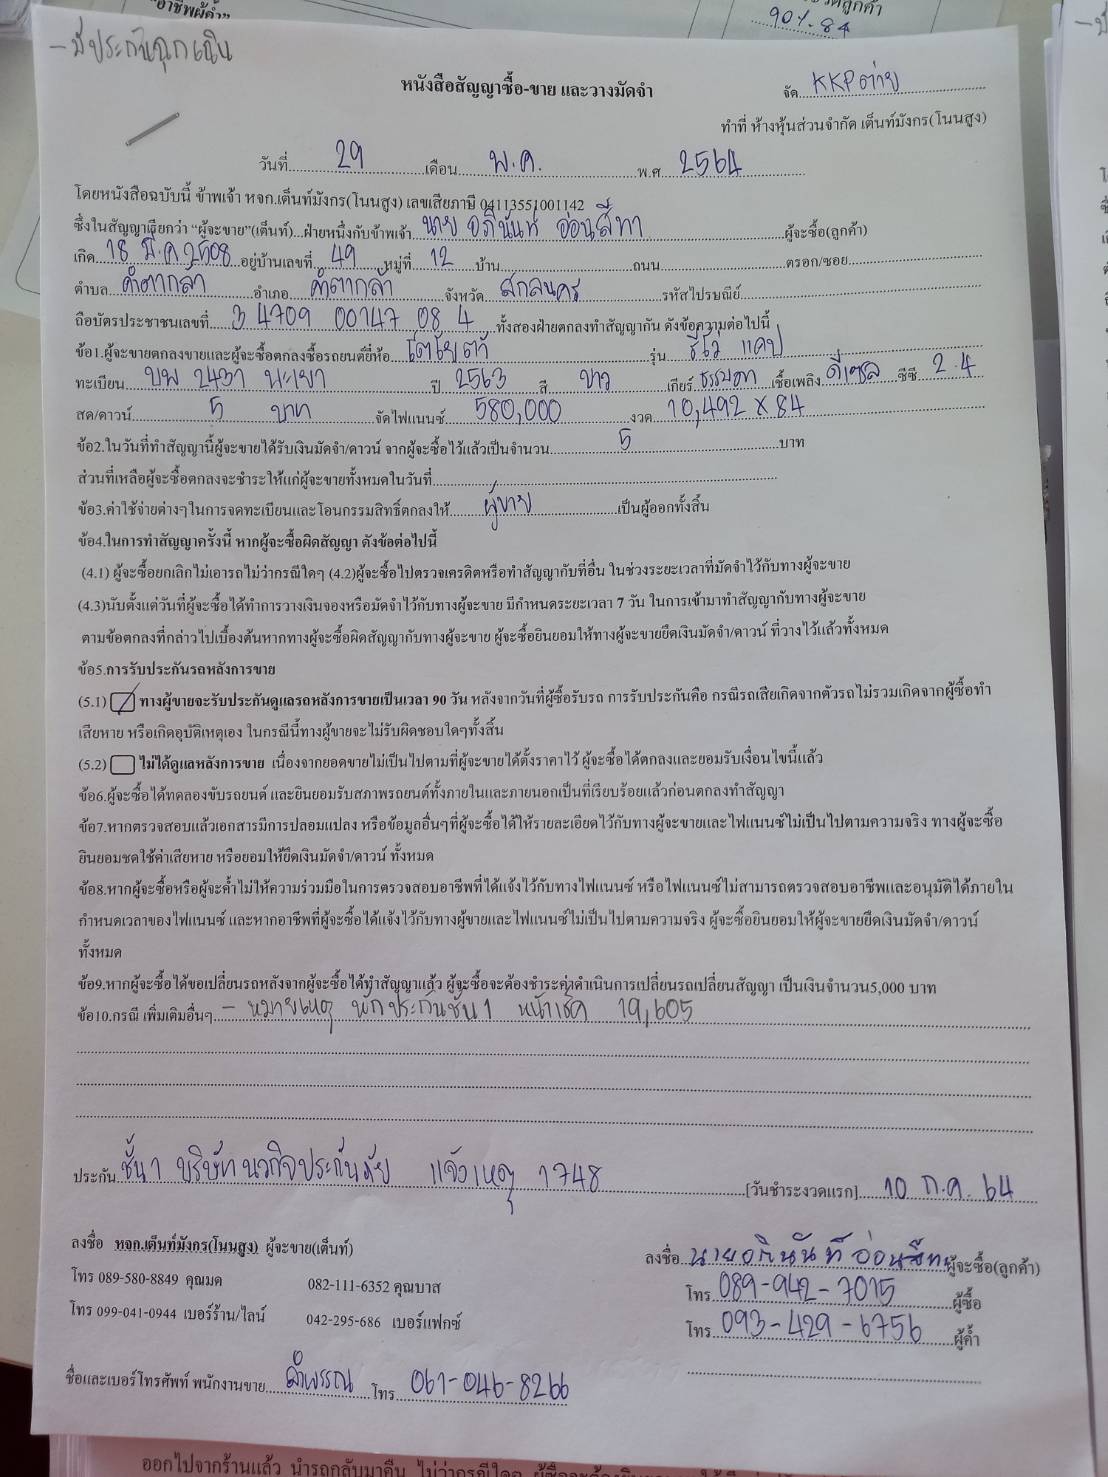 "อาชีพผู้ค้ำ"
90%-84
- มีประกันฉุกเฉิน
หนังสือสัญญาซื้อ-ขาย และวางมัดจำ
จัด KKP ต่าย
ทำที่ ห้างหุ้นส่วนจำกัด เต็นท์มังกร(โนนสูง)
วันที่ 29 เดือน พ.ค. พ.ศ 2564
โดยหนังสือฉบับนี้ ข้าพเจ้า หจก.เต็นท์มังกร(โนนสูง) เลขเสียภาษี 04113551001142
ซึ่งในสัญญาเรียกว่า "ผู้จะขาย"(เต็นท์)...ฝ่ายหนึ่งกับข้าพเจ้า นาย อภินันท์ อ่อนสีทา ผู้จะซื้อ(ลูกค้า)
เกิด 18 มี.ค 2508 อยู่บ้านเลขที่ 49 หมู่ที่ 12 บ้าน ถนน ตรอก/ซอย
ตำบล คำตากล้า อำเภอ คำตากล้า จังหวัด สกลนคร รหัสไปรษณีย์
ถือบัตรประชาชนเลขที่ 3 4709 00147 08 4 ทั้งสองฝ่ายตกลงทำสัญญากัน ดังข้อความต่อไปนี้
ข้อ1.ผู้จะขายตกลงขายและผู้จะซื้อตกลงซื้อรถยนต์ยี่ห้อ โตโยต้า รุ่น รีโว่ แคป
ทะเบียน บพ 2437 พะเยา ปี 2563 สี ขาว เกียร์ ธรรมดา เชื้อเพลิง ดีเซล ซีซี 2.4
สด/ดาวน์ 5 บาท จัดไฟแนนซ์ 580,000 งวด 10,492 x 84
ข้อ2.ในวันที่ทำสัญญานี้ผู้จะขายได้รับเงินมัดจำ/ดาวน์ จากผู้จะซื้อไว้แล้วเป็นจำนวน 5 บาท
ส่วนที่เหลือผู้จะซื้อตกลงจะชำระให้แก่ผู้จะขายทั้งหมดในวันที่
ข้อ3.ค่าใช้จ่ายต่างๆในการจดทะเบียนและโอนกรรมสิทธิ์ตกลงให้ ผู้ขาย เป็นผู้ออกทั้งสิ้น
ข้อ4.ในการทำสัญญาครั้งนี้ หากผู้จะซื้อผิดสัญญา ดังข้อต่อไปนี้
(4.1) ผู้จะซื้อยกเลิกไม่เอารถไม่ว่ากรณีใดๆ (4.2)ผู้จะซื้อไปตรวจเครดิตหรือทำสัญญากับที่อื่น ในช่วงระยะเวลาที่มัดจำไว้กับทางผู้จะขาย
(4.3)นับตั้งแต่วันที่ผู้จะซื้อได้ทำการวางเงินจองหรือมัดจำไว้กับทางผู้จะขาย มีกำหนดระยะเวลา 7 วัน ในการเข้ามาทำสัญญากับทางผู้จะขาย
ตามข้อตกลงที่กล่าวไปเบื้องต้นหากทางผู้จะซื้อผิดสัญญากับทางผู้จะขาย ผู้จะซื้อยินยอมให้ทางผู้จะขายยึดเงินมัดจำ/ดาวน์ ที่วางไว้แล้วทั้งหมด
ข้อ5.การรับประกันรถหลังการขาย
(5.1) ทางผู้ขายจะรับประกันดูแลรถหลังการขายเป็นเวลา 90 วัน หลังจากวันที่ผู้ซื้อรับรถ การรับประกันคือ กรณีรถเสียเกิดจากตัวรถไม่รวมเกิดจากผู้ซื้อทำ
เสียหาย หรือเกิดอุบัติเหตุเอง ในกรณีนี้ทางผู้ขายจะไม่รับผิดชอบใดๆทั้งสิ้น
(5.2) ไม่ได้ดูแลหลังการขาย เนื่องจากยอดขายไม่เป็นไปตามที่ผู้จะขายได้ตั้งราคาไว้ ผู้จะซื้อได้ตกลงและยอมรับเงื่อนไขนี้แล้ว
ข้อ6.ผู้จะซื้อได้ทดลองขับรถยนต์ และยินยอมรับสภาพรถยนต์ทั้งภายในและภายนอกเป็นที่เรียบร้อยแล้วก่อนตกลงทำสัญญา
ข้อ7.หากตรวจสอบแล้วเอกสารมีการปลอมแปลง หรือข้อมูลอื่นๆที่ผู้จะซื้อได้ให้รายละเอียดไว้กับทางผู้จะขายและไฟแนนซ์ไม่เป็นไปตามความจริง ทางผู้จะซื้อ
ยินยอมชดใช้ค่าเสียหาย หรือยอมให้ยึดเงินมัดจำ/ดาวน์ ทั้งหมด
ข้อ8.หากผู้จะซื้อหรือผู้จะค้ำไม่ให้ความร่วมมือในการตรวจสอบอาชีพที่ได้แจ้งไว้กับทางไฟแนนซ์ หรือไฟแนนซ์ไม่สามารถตรวจสอบอาชีพและอนุมัติได้ภายใน
กำหนดเวลาของไฟแนนซ์ และหากอาชีพที่ผู้จะซื้อได้แจ้งไว้กับทางผู้ขายและไฟแนนซ์ไม่เป็นไปตามความจริง ผู้จะซื้อยินยอมให้ผู้จะขายยึดเงินมัดจำ/ดาวน์
ทั้งหมด
ข้อ9.หากผู้จะซื้อได้ขอเปลี่ยนรถหลังจากผู้จะซื้อได้ทำสัญญาแล้ว ผู้จะซื้อจะต้องชำระค่าดำเนินการเปลี่ยนรถเปลี่ยนสัญญา เป็นเงินจำนวน5,000 บาท
ข้อ10.กรณี เพิ่มเติมอื่นๆ - หมายเหตุ หักประกันชั้น 1 หน้าเช็ค 19,605
ประกัน ชั้น 1 บริษัท นวกิจประกันภัย แจ้งเหตุ 1748 [วันชำระงวดแรก] 10 ก.ค. 64
ลงชื่อ หจก.เต็นท์มังกร(โนนสูง) ผู้จะขาย(เต็นท์)
ลงชื่อ นายอภินันท์ อ่อนสีทา ผู้จะซื้อ(ลูกค้า)
โทร 089-580-8849 คุณมด 082-111-6352 คุณบาส
โทร 089-942-7015 ผู้ซื้อ
โทร 099-041-0944 เบอร์ร้าน/ไลน์ 042-295-686 เบอร์แฟกซ์
โทร 093-429-6756 ผู้ค้ำ
ชื่อและเบอร์โทรศัพท์ พนักงานขาย ลำพรรณ โทร 061-046-8266
ออกไปจากร้านแล้ว นำรถกลับมาคืน ไม่ว่ากรณีใดๆ